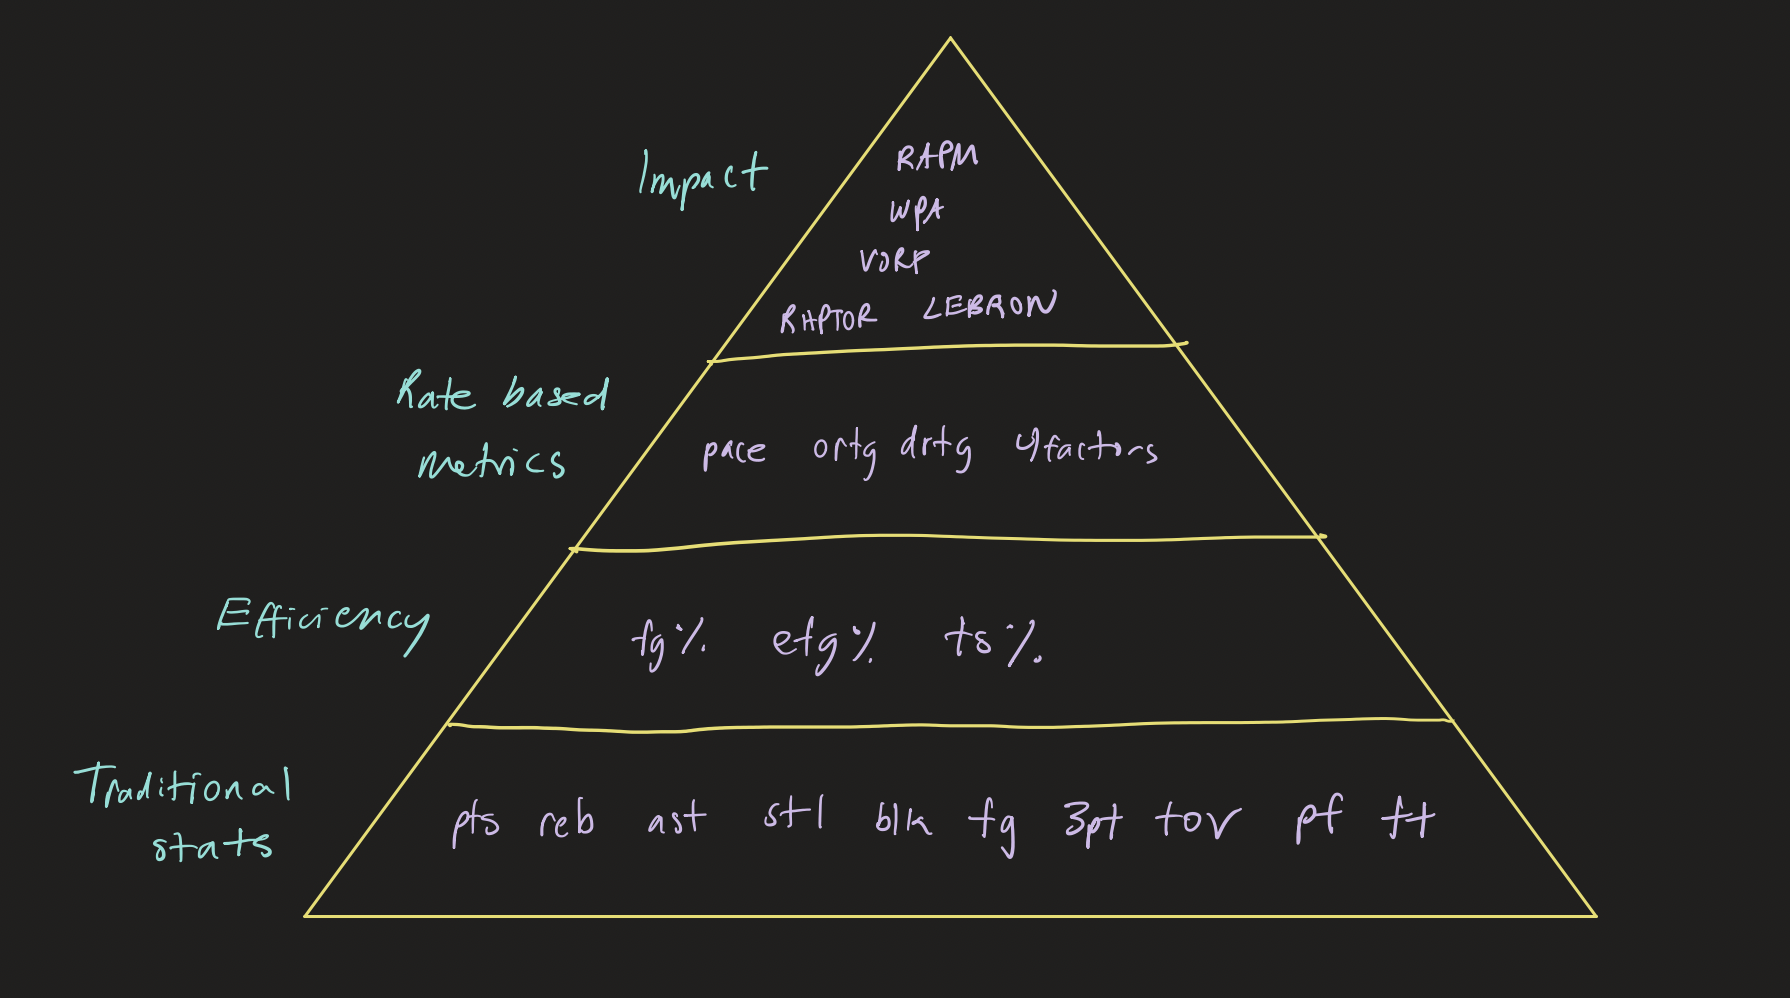 Impact
RAPM
WPA
VORP
RAPTOR LEBRON
Rate based
metrics
pace ortg drtg 4factors
Efficiency
fg% efg% ts%
Traditional
stats
pts reb ast stl blk fg 3pt tov pf ft